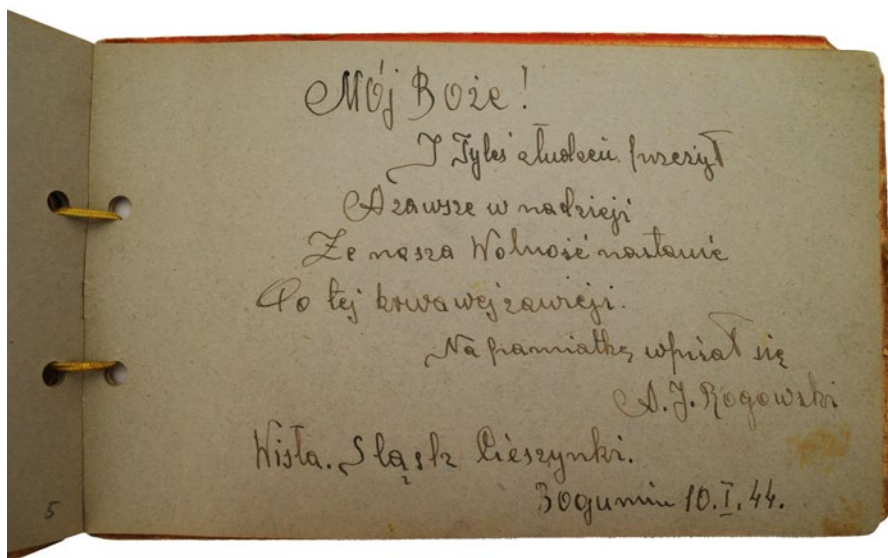 Mój Boże!
I Tyleś złudzeń przeżył
A zawsze w nadzieji
Że nasza Wolność nastanie
Po tej krwawej zawieji.
Na pamiatkę wpisał się
A. J. Rogowski
Wisła. Sląsk Cieszynki.
Bogumin 10.I.44.
5